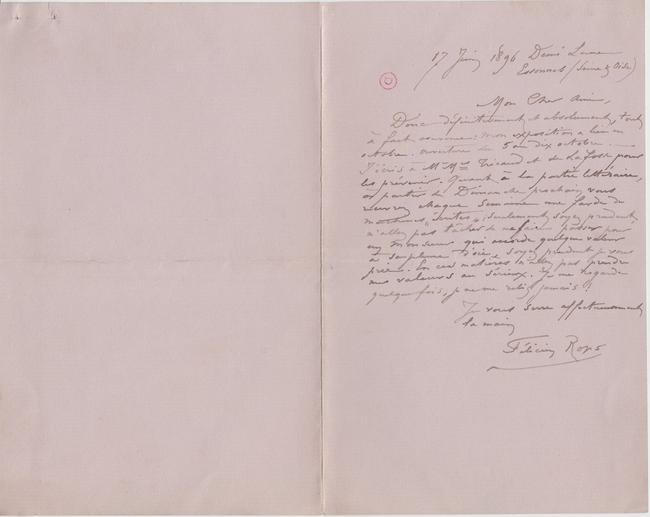 17 Juin 1896 Demi Lune
Essonnes (Seine & Oise)
Mon Cher Ami,
Donc définitivement & absolument, tout
à fait convenu: mon exposition a lieu en
octobre. ouverture du 5 au dix octobre.
J'écris à M. M. & de pour
les prévenir. Quant à la partie littéraire,
à partir de Dimanche prochain, vous
recevrez chaque semaine une
seulement soyez prudent,
n'allez pas tâcher de me faire passer pour
un Monsieur qui accorde quelque valeur
à sa plume d'oie, soyez prudent je vous
prie. En ces matières n'allez pas prendre
mes valeurs au sérieux. Je me regarde
quelque fois, je ne me relis jamais!
Je vous serre affectueusement
la main
Félicien Rops